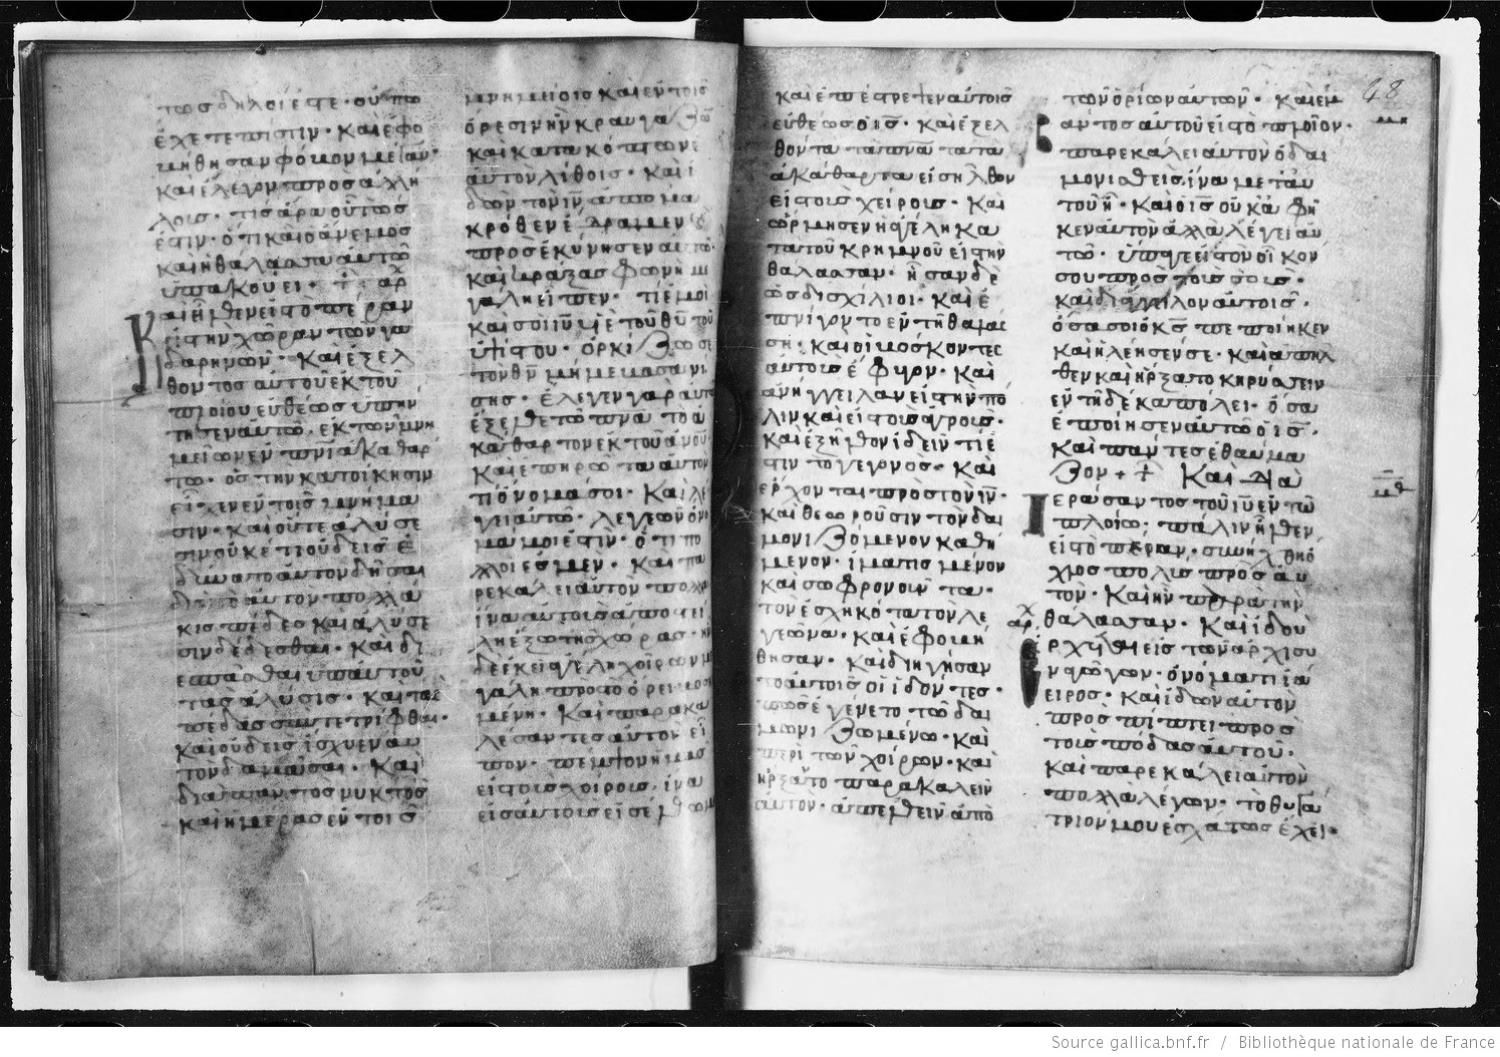 τως δηλοί ἐστε· οὔπω
ἔχετε πίστιν· καὶ ἐφο
βήθησαν φόβον μέγαν·
καὶ ἔλεγον πρὸς ἀλλή
λους· τίς ἄρα οὗτός
ἐστιν· ὅτι καὶ ὁ ἄνεμος
καὶ ἡ θάλασσα αὐτῶ
ὑπακούει·
Καὶ ἦλθεν εἰς τὸ πέραν
εἰς τὴν χώραν τῶν γα
δαρηνῶν· καὶ ἐξελ
θόντος αὐτοῦ ἐκ τοῦ
πλοίου εὐθέως ὑπήν
τησεν αὐτῶ· ἐκ τῶν μνη
μείων ἐν πνι ἀκαθάρ
τω· ὃς τὴν κατοίκησιν
εἶχεν ἐν τοῖς μνήμα
σιν· καὶ οὔτε ἁλύσε
σιν οὐκέτι οὐδεὶς ἐ
δύνατο αὐτὸν δῆσαι
διὰ τὸ αὐτὸν πολλά
κις πέδες καὶ ἁλύσε
σιν δεδέσθαι· καὶ δι
εσπάσθαι ὑπ' αὐτοῦ
τὰς ἁλύσις· καὶ τὰς
πέδας συντετρίφθαι·
καὶ οὐδεὶς ἴσχυεν αὐ
τὸν δαμάσαι· Καὶ
διαπαντὸς νυκτὸς
καὶ ἡμέρας ἐν τοῖς
μνημείοις καὶ ἐν τοῖς
ὄρεσιν ἦν κραυγάζω
καὶ κατακόπτων ἑ
αυτὸν λίθοις· Καὶ ἰ
δὼν τὸν ιν ἀπὸ μα
κρόθεν ἔδραμεν
προσεκύνησεν αὐτῶ·
καὶ κράξας φωνῆ με
γάλη εἶπεν· τί ἐμοὶ
καὶ σοὶ ιυ υἱὲ τοῦ θυ τοῦ
ὑψίστου· ὁρκίζω σε
τὸν θν μή με βασανί
σης· ἔλεγεν γὰρ αὐτῶ
ἔξελθε τὸ πνα τὸ ἀ
κάθαρτον ἐκ τοῦ ανου
Καὶ ἐπηρώτα αὐτὸν
τί ὄνομά σοι· Καὶ λέ
γει αὐτῶ· λεγεὼν ὄνο
μά μοι ἐστιν· ὅτι πο
λλοί ἐσμεν· Καὶ πα
ρεκάλει αὐτὸν πολλὰ
ἵνα αὐτοὺς ἀποστεί
λη ἔξω τῆς χώρας· ἦν
δὲ ἐκεῖ ἀγέλη χοίρων με
γάλη πρὸς τὸ ὄρει βοσκο
μένη· Καὶ παρακα
λέσαντες αὐτὸν εἶ
πον· πέμψον ἡμᾶς
εἰς τοὺς χοίρους· ἵνα
εἰς αὐτοὺς εἰσέλθωμεν
καὶ ἐπέστρεψεν αὐτοὺς
εὐθέως ὁ ις· Καὶ ἐξελ
θόντα τὰ πνα τὰ
ἀκάθαρτα εἰσῆλθον
εἰς τοὺς χείρους· Καὶ
ὥρμησεν ἡ ἀγέλη κα
τὰ τοῦ κρημνοῦ εἰς τὴν
θάλασσαν· ἦσαν δὲ
ὡς δισχίλιοι· καὶ ἐ
πνίγοντο ἐν τῆ θαλάσ
ση· καὶ οἱ βόσκοντες
αὐτοὺς ἔφυγον· Καὶ
ἀνήγγειλαν εἰς τὴν πό
λιν καὶ εἰς τοὺς ἀγρούς·
Καὶ ἐξῆλθον ἰδεῖν τί ἐ
στιν τὸ γεγονός· Καὶ
ἔρχονται πρὸς τὸν ιν·
καὶ θεωροῦσιν τὸν δαι
μονιζόμενον καθή
μενον· ἱματισμένον
καὶ σωφρονοῦντα·
τὸν ἐσχηκότα τὸν λε
γεῶνα· καὶ ἐφοβή
θησαν· Καὶ διηγήσαν
το αὐτοῖς οἱ ἰδόντες·
πῶς ἐγένετο τῶ δαι
μονιζωμένω· καὶ
περὶ τῶν χοίρων· καὶ
ἤρξαντο παρακαλεῖν
αὐτὸν· ἀπελθεῖν ἀπὸ
48
τῶν ὁρίων αὐτῶν· Καὶ ἐμ
βάντος αὐτοῦ εἰς τὸ πλοῖον·
παρεκάλει αὐτὸν ὁ δαι
μονισθεὶς· ἵνα μετ' αὐ
τοῦ ἦ· Καὶ ὁ ις οὐκ ἀφῆ
κεν αὐτὸν ἀλλὰ λέγει αὐ
τῶ· ὕπαγε εἰς τὸν οἶκον
σου πρὸς τοὺς σούς·
καὶ διάγγειλον αὐτοῖς·
ὅσα σοι ὁ κς πεποίηκεν
καὶ ἠλέησέν σε· καὶ ἀπῆλ
θεν καὶ ἤρξατο κηρύσσειν
ἐν τῆ δεκαπόλει· ὅσα
ἐποίησεν αὐτῶ ὁ ις·
Καὶ πάντες ἐθαύμα
ζον + Καὶ δια
περάσαντος τοῦ ιυ ἐν τῶ
πλοίω· πάλιν ἦλθεν
εἰς τὸ πέραν· συνήχθη ὄ
χλος πολὺς πρὸς αὐ
τόν· Καὶ ἦν παρὰ τὴν
θάλασσαν· Καὶ ἰδοὺ
ἔρχεται εἷς τῶν ἀρχισυ
ναγώγων· ὀνόματι ἰά
ειρος· Καὶ ἰδὼν αὐτὸν
πρὸς πίπτει πρὸς
τοὺς πόδας αὐτοῦ·
Καὶ παρεκάλει αὐτὸν
πολλὰ λέγων· τὸ θυγά
τριόν μου ἐσχάτως ἔχει·
Source gallica.bnf.fr / Bibliothèque nationale de France